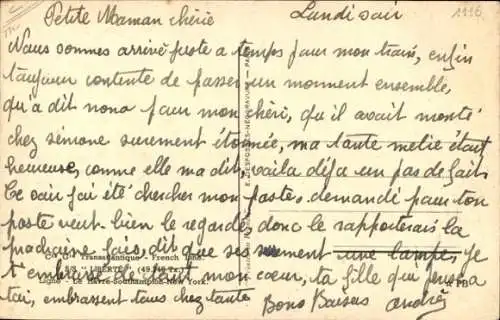 Petite Maman chérie Lundi soir 1196
Nous sommes arrivé juste a temps pour mon train, enfin
toujours contente de passer un moment ensemble,
qu'a dit nona pour mon chéri, qu'il avait monté
chez simone surement étonnée, ma tante melie était
heureuse, comme elle ma dit, voila déja un pas de fait
Ce soir j'ai été chercher mon poste, demandé pour ton
poste veut-bien le regarder, donc le rapporterais la
prochaine fois, dit que ses surement une lampe, je
t'embrasse de tout mon cœur, ta fille qui pense a
toi, embrassent tous chez tante Bons Baisers andrée
E. DESFOSSÉS-NÉOGRAVURE - PARIS
Cie Gle Transatlantique - French Line
S/S "LIBERTÉ"
Ligne - Le Havre-Southampton-New York.